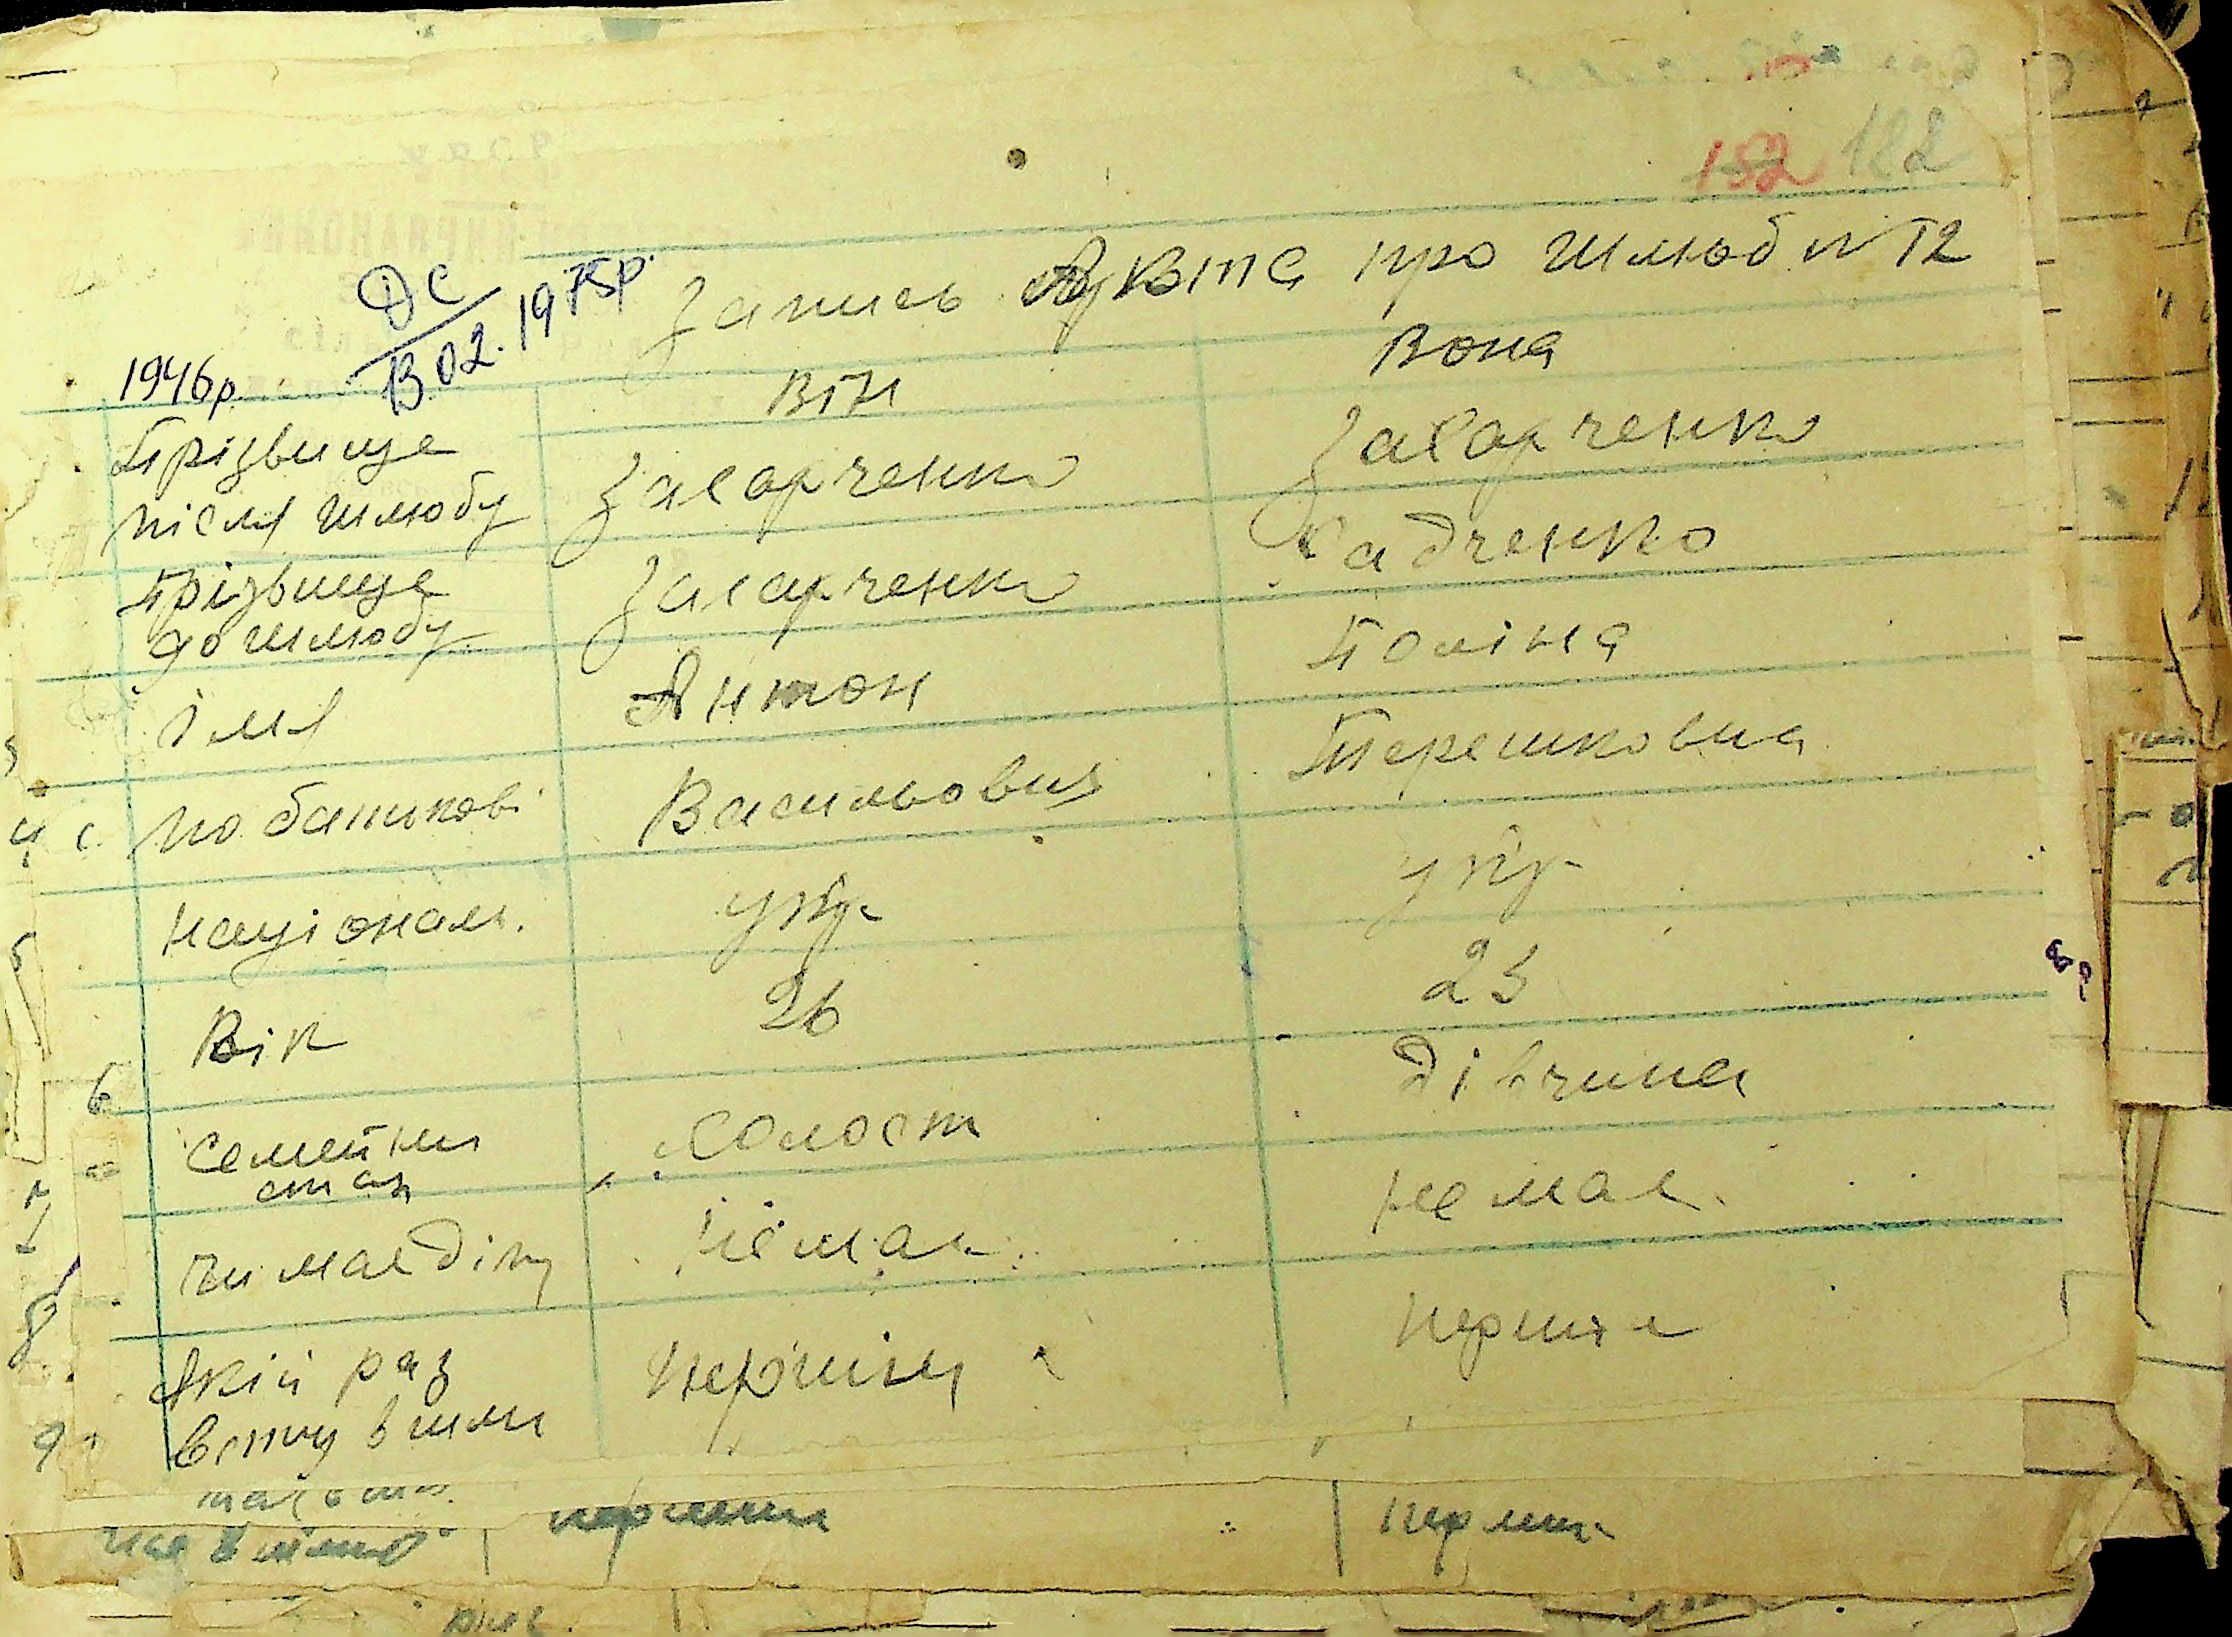 152 182
ДС
13.02.1975р.
Запись Акта про Шлюб № 12
1946р.
Він Вона
Прізвище після шлюбу Захарченко Захарченко
Прізвище до шлюбу Захарченко Радченко
Імя Антон Поліна
по батькові Васильович Терешковна
національ. укр. укр
Вік 26 23
Семейни стан холост Дівчина
чи має діти немає немає.
Якій раз Перший перший
вступ в шлю